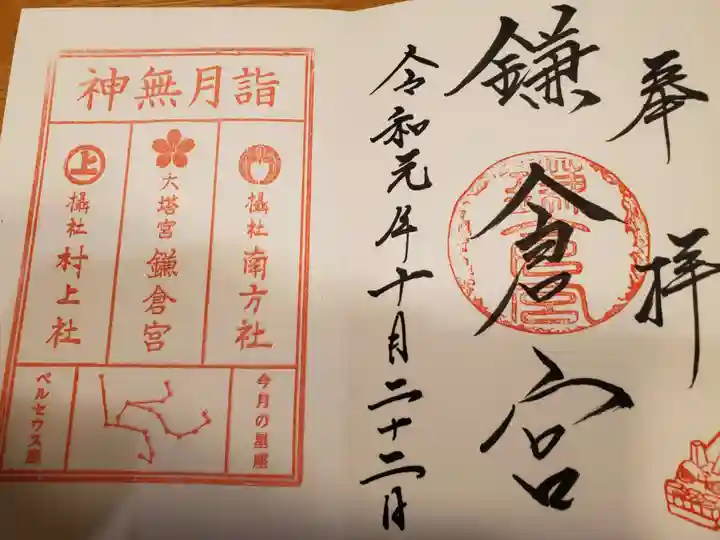 奉拝
鎌倉宮
令和元年十月二十二日
神無月詣
摂社 南方社
大塔宮 鎌倉宮
上
摂社 村上社
今月の星座
ペルセウス座